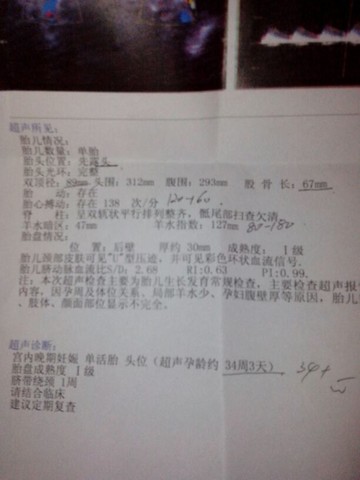 超声所见:
胎儿情况:
胎儿数量: 单胎
胎头位置: 先露头
胎头光环: 完整
双顶径: 89mm 头围: 312mm 腹围: 293mm 股骨长: 67mm
胎 动: 存在
胎心搏动: 存在 138 次/分 120-160
脊 柱: 呈双轨状平行排列整齐, 骶尾部扫查欠清
羊水暗区: 47mm 羊水指数: 127mm 80-180
胎盘情况:
位 置: 后壁 厚约 30mm 成熟度: Ⅰ级
胎儿颈部皮肤可见"U"型压迹, 并可见彩色环状血流信号.
胎儿脐动脉血流比S/D: 2.68 RI:0.63 PI:0.99.
注: 本次超声检查主要为胎儿生长发育常规检查, 主要检查超声报
内容, 因孕周及体位关系、局部羊水少、孕妇腹壁厚等原因, 胎儿
、肢体、颜面部位显示不完全.
超声诊断:
宫内晚期妊娠 单活胎 头位 (超声孕龄约 34周3天) 34+
胎盘成熟度 Ⅰ级
脐带绕颈 1周
请结合临床
建议定期复查